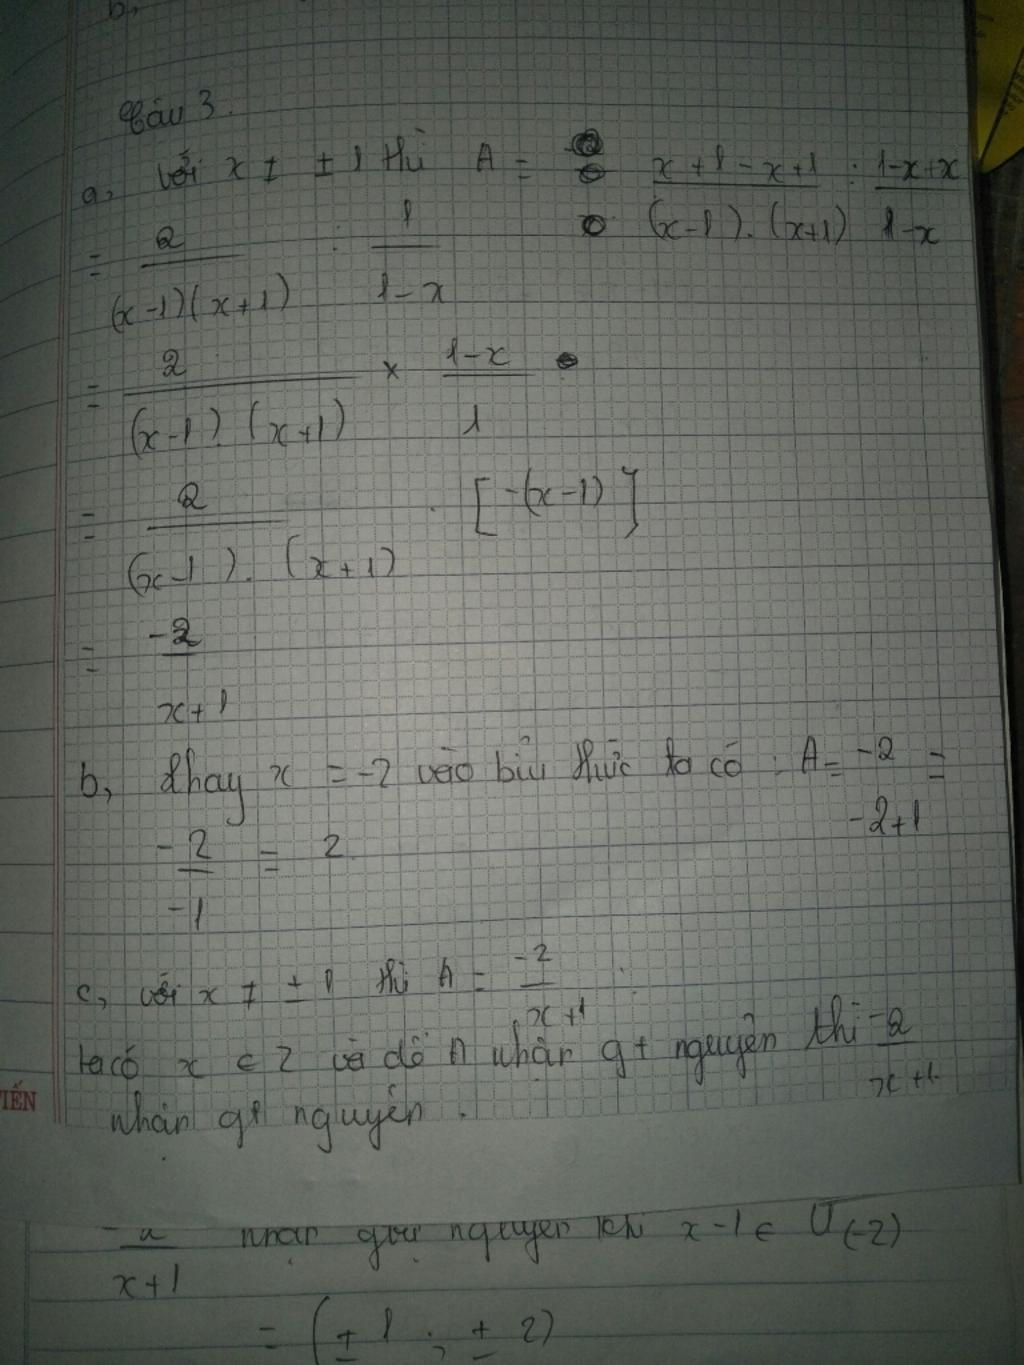 b,
Câu 3.
a, với x ≠ ±1 thì A = x+1-x+1 : 1-x+x
(x-1).(x+1) 1-x
= 2 : 1
(x-1)(x+1) 1-x
= 2 × 1-x
(x-1).(x+1) 1
= 2 . [-(x-1)]
(x-1).(x+1)
= -2
x+1
b, Thay x = -2 vào biểu thức ta có: A = -2 =
-2+1
-2 = 2
-1
c, với x ≠ ±1 thì A = -2 .
x+1
ta có x ∈ Z và để A nhận gt nguyên thì -2
x+1
nhận gt nguyên.
TIẾN
-2 nhận giá nguyên khi x-1 ∈ Ư(-2)
x+1
= (±1 ; ±2)